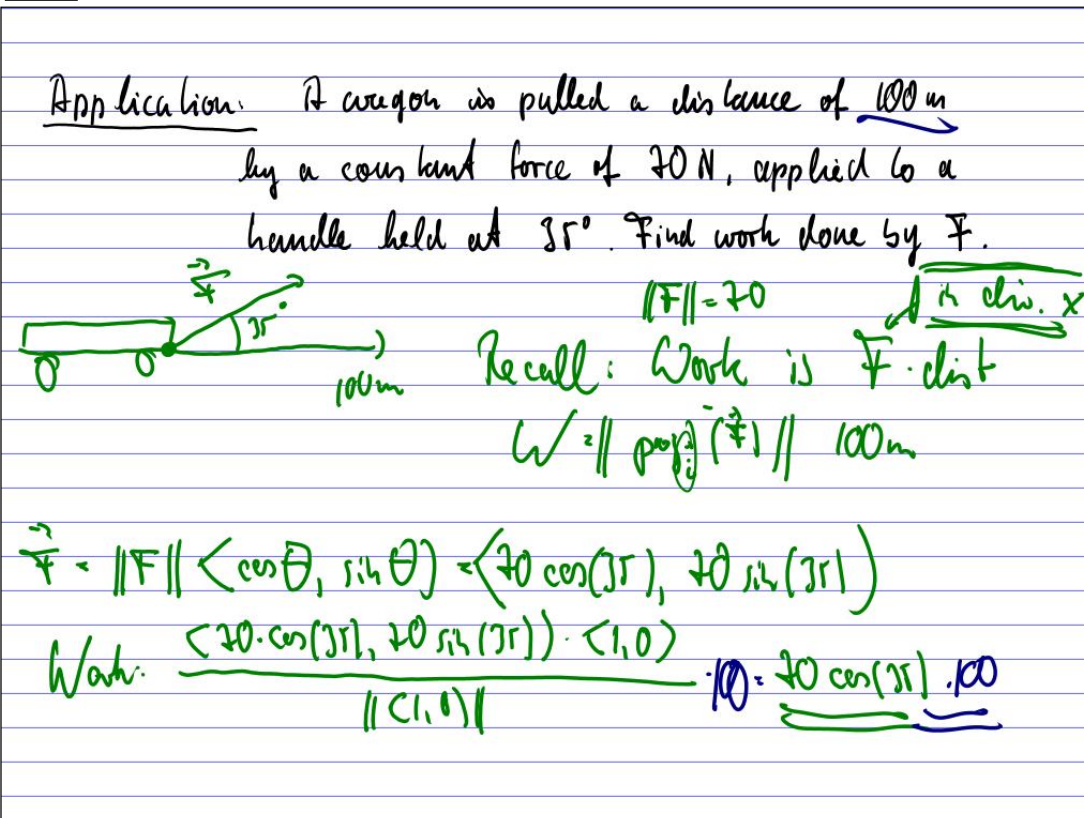 Application: A wagon is pulled a distance of 100 m
by a constant force of 70 N, applied to a
handle held at 35°. Find work done by F.
F⃗ 35° 100m
||F|| = 70 in dir. x
Recall: Work is F · dist
W = || proj_i⃗ (F⃗) || 100m
F⃗ = ||F|| <cos θ, sin θ> = <70 cos(35), 70 sin(35)>
Work: <70·cos(35), 70 sin(35)> · <1,0> / ||<1,0>|| · 100 = 70 cos(35) · 100